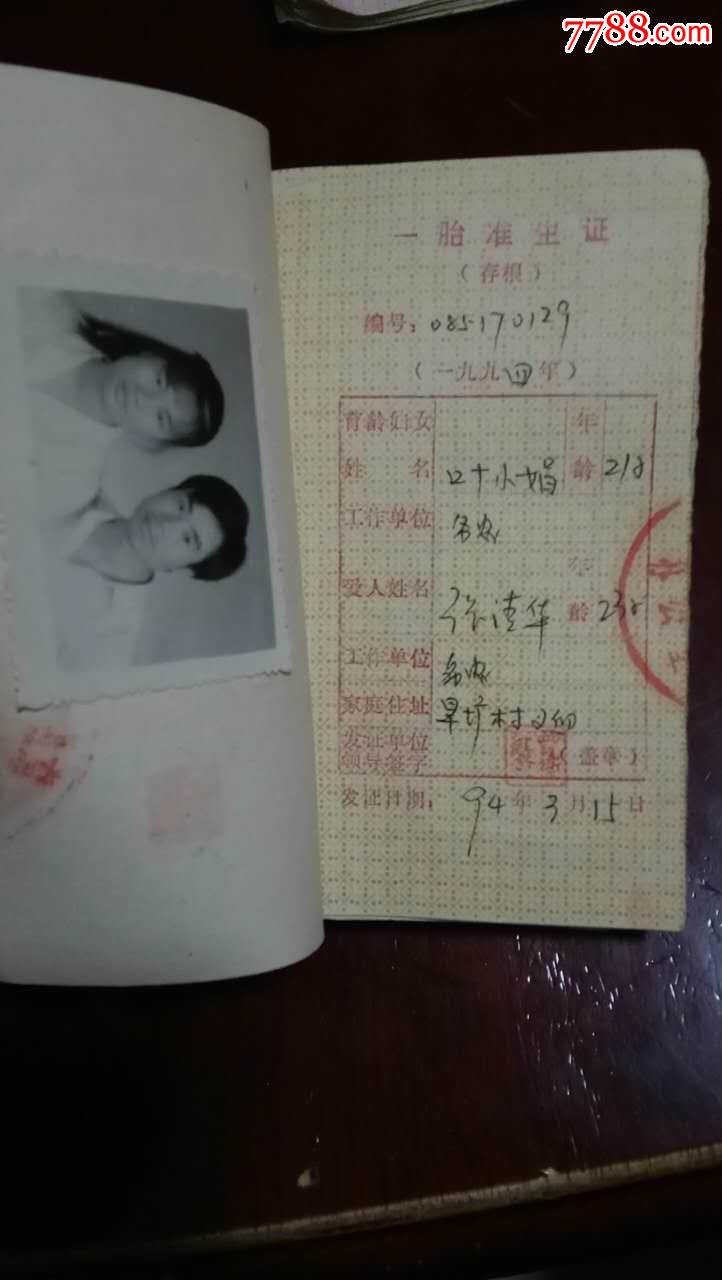 7788.com
一胎准生证
(存根)
编号：085170129
(一九九四年)
育龄妇女 年
姓名 叶小娟 龄 21岁
工作单位 务农
爱人姓名 年
张清华 龄 23岁
工作单位 务农
家庭住址 旱圹村
发证单位
领导签字 (盖章)
发证日期：94年3月15日